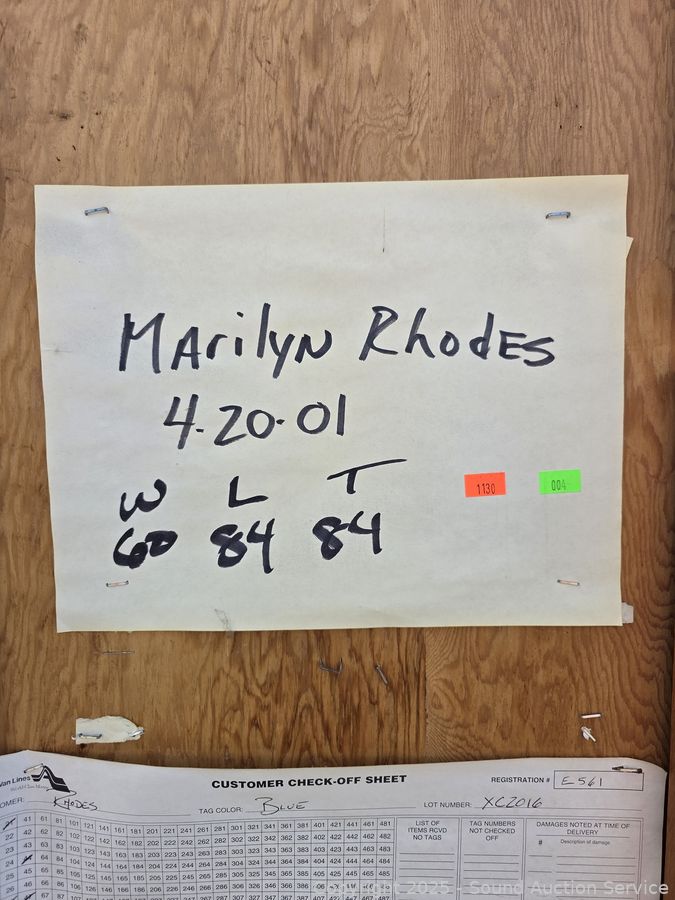 Marilyn Rhodes
4-20-01
W L T
60 84 84
1130 004
Van Lines
CUSTOMER CHECK-OFF SHEET
REGISTRATION # E561
OMER: RHODES
TAG COLOR: BLUE
LOT NUMBER: XC2016
41 61 81 101 121 141 161 181 201 221 241 261 281 301 321 341 361 381 401 421 441 461 481
22 42 62 82 102 122 142 162 182 202 222 242 262 282 302 322 342 362 382 402 422 442 462 482
23 43 63 83 103 123 143 163 183 203 223 243 263 283 303 323 343 363 383 403 423 443 463 483
24 64 84 104 124 144 164 184 204 224 244 264 284 304 324 344 364 384 404 424 444 464 484
25 45 65 85 105 125 145 165 185 205 225 245 265 285 305 325 345 365 385 405 425 445 465 485
26 46 66 86 106 126 146 166 186 206 226 246 266 286 306 326 346 366 386 406 426 446 466 486
LIST OF
ITEMS RCVD
NO TAGS
TAG NUMBERS
NOT CHECKED
OFF
DAMAGES NOTED AT TIME OF
DELIVERY
# Description of damage
Copyright 2025 - Sound Auction Service